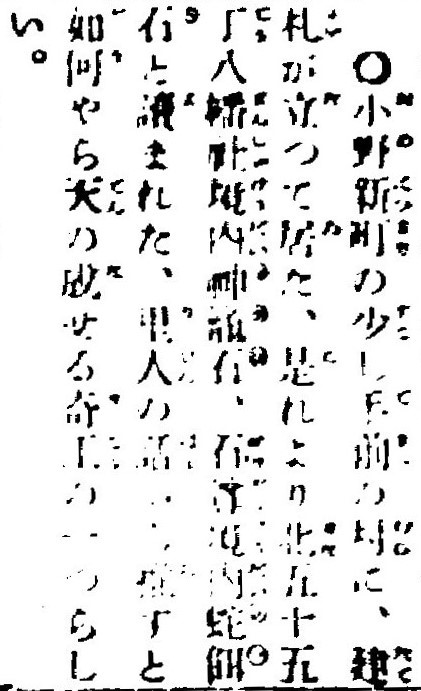 〇小野新町の少し手前の村に、建
札が立つて居た、是れより北五十五
丁八幡社境内神石、石境内蛇
石と讀まれた、里人の話から推すと
如何やら天の成せる奇工の一つらし
い。